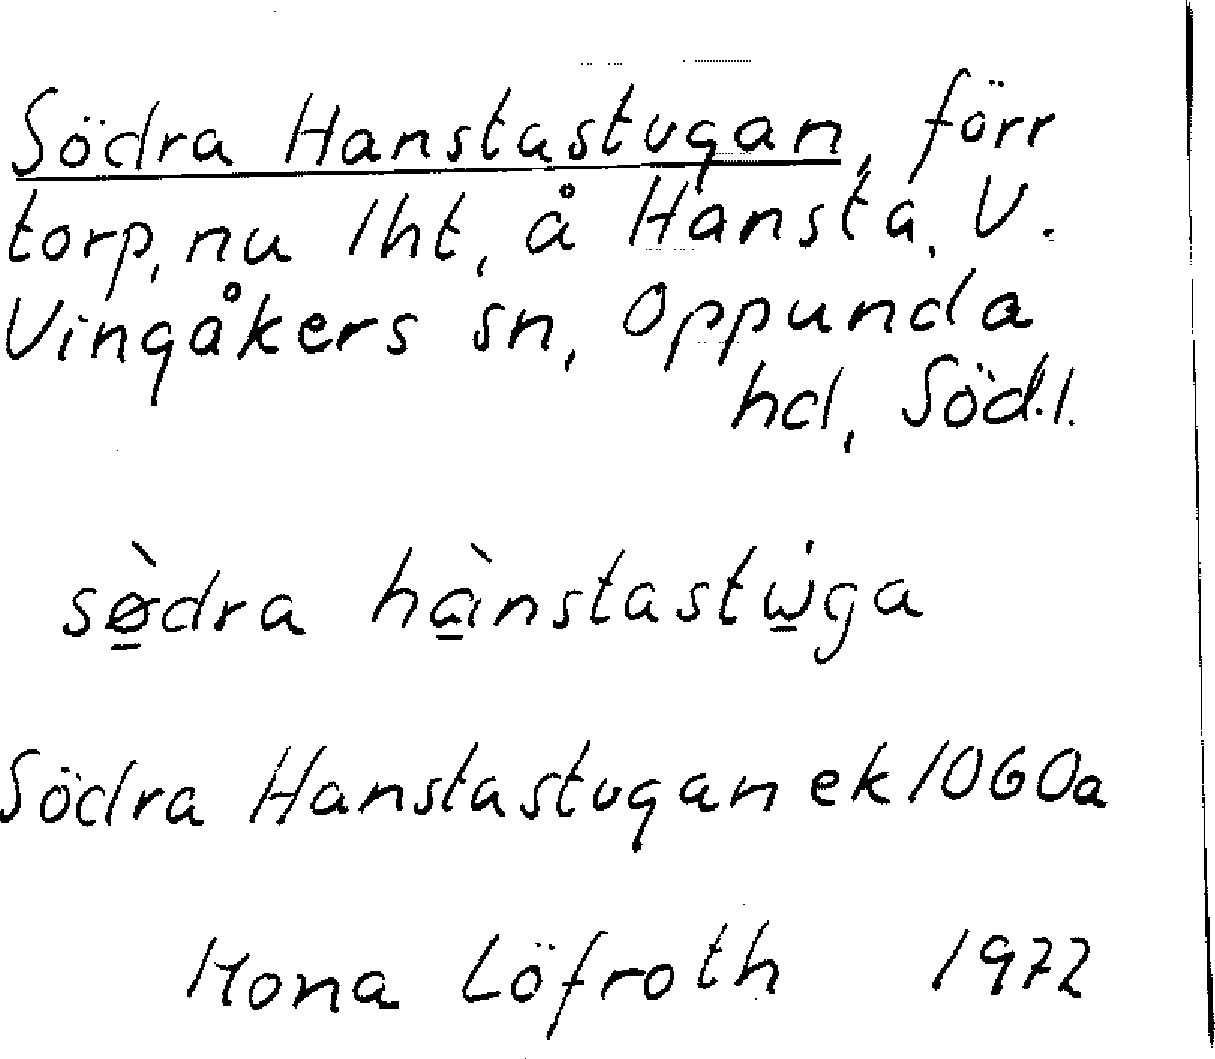 Södra Hanstastugan, förr
torp, nu lht, å Hansta, V.
Vingåkers sn, Oppunda
hd, Söd.l.
sø̱̀dra hà̱nstastẇ̱ga
Södra Hanstastugan ek 1060a
Mona Löfroth 1972